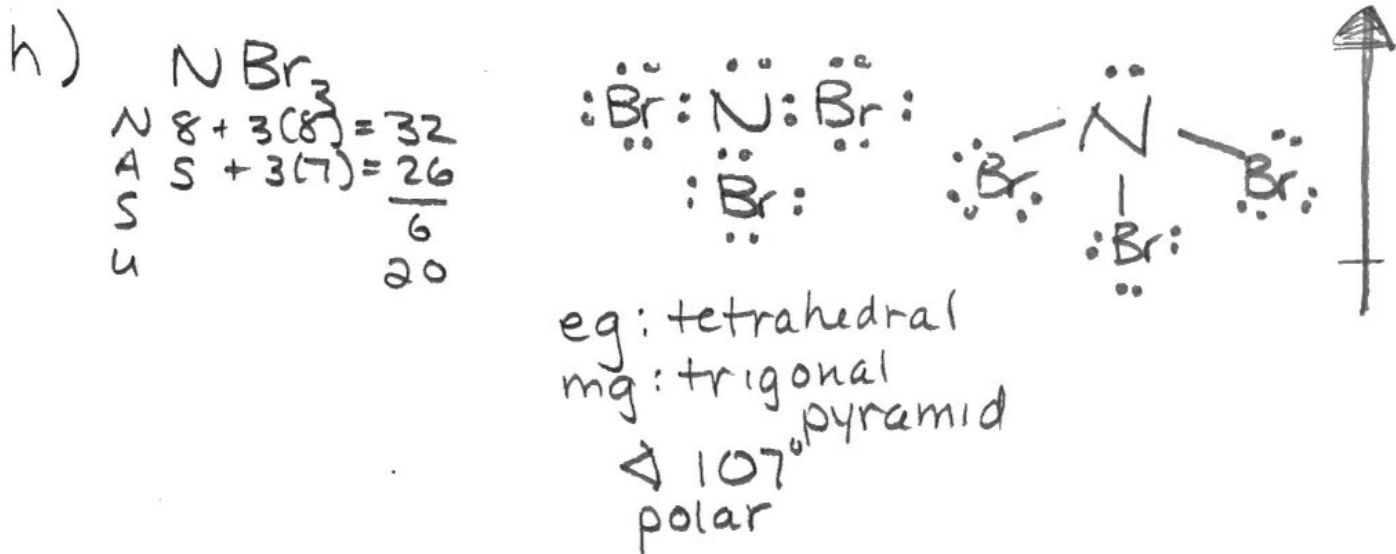 h) NBr₃
N 8 + 3(8) = 32
A 5 + 3(7) = 26
S 6
U 20
:Br:N:Br:
:Br:
N
Br Br
:Br:
eg: tetrahedral
mg: trigonal
pyramid
∢ 107°
polar